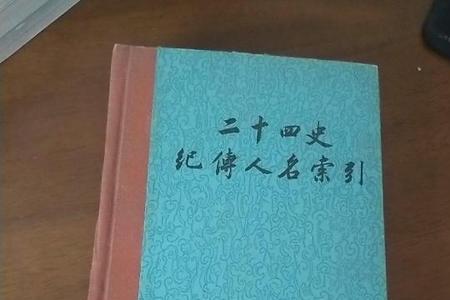 二十四史
纪傳人名索引